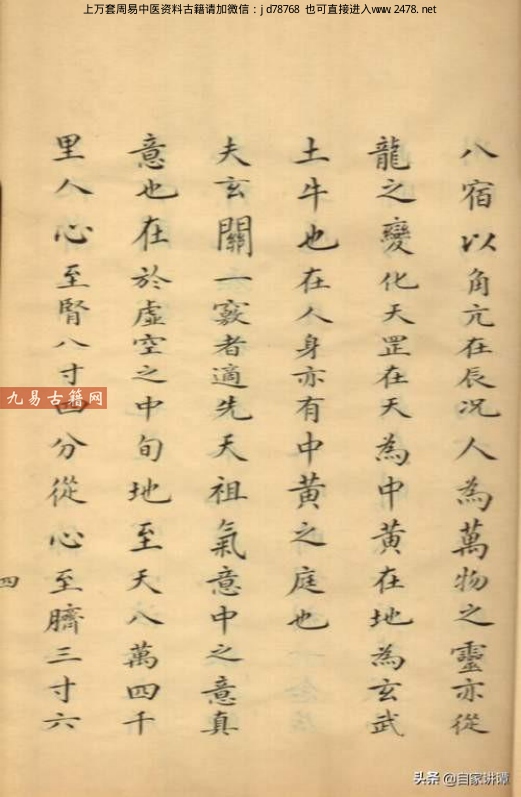 上万套周易中医资料古籍请加微信：jd78768 也可直接进入www.2478.net
八宿以角亢在辰况人為萬物之靈亦從
龍之變化天罡在天為中黄在地為玄武
土牛也在人身亦有中黄之庭也
夫玄關一竅者適先天祖氣意中之意真
意也在於虛空之中旬地至天八萬四千
里人心至腎八寸四分從心至臍三寸六
四
九易古籍网
头条 @自家讲谭